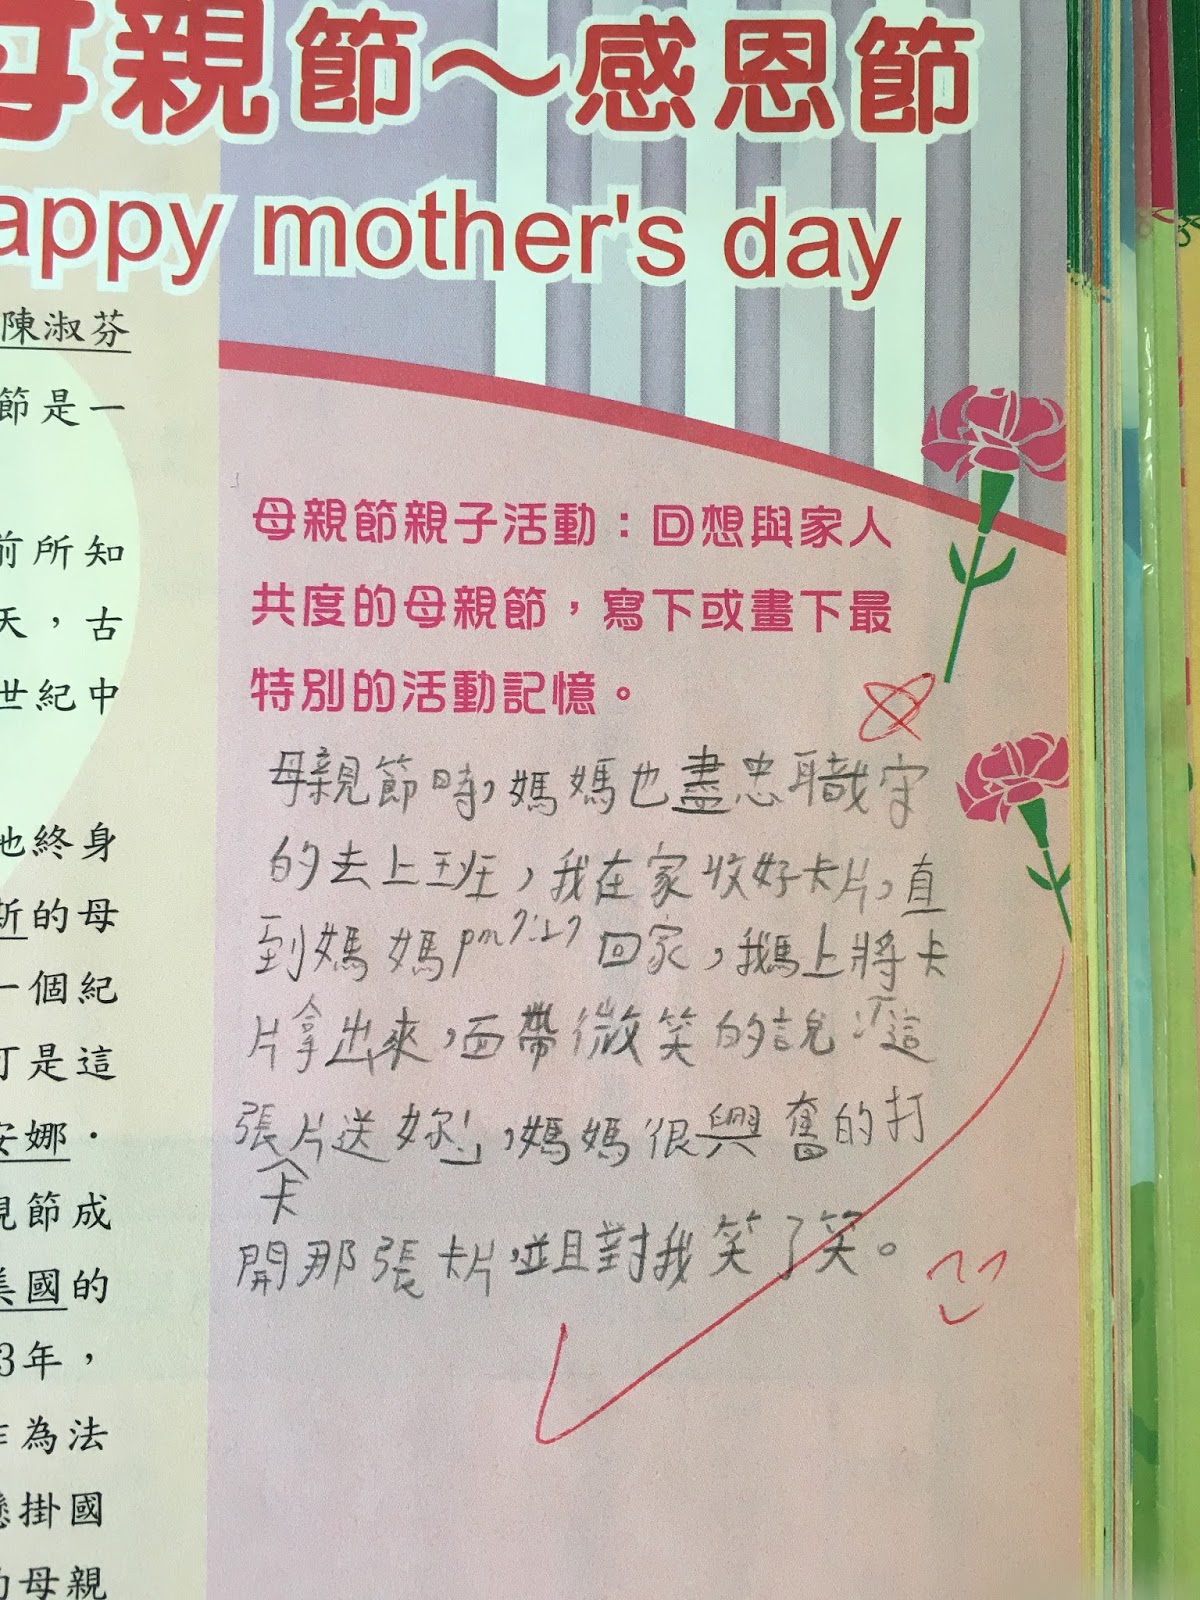 母親節～感恩節
appy mother's day
陳淑芬
節是一
前所知
天，古
世紀中
他終身
斯的母
一個紀
丁是這
安娜．
親節成
美國的
3年，
作為法
懸掛國
的母親
母親節親子活動：回想與家人
共度的母親節，寫下或畫下最
特別的活動記憶。
母親節時，媽媽也盡忠職守
的去上班，我在家收好卡片，直
到媽媽pm7:27回家，我馬上將卡
片拿出來，面帶微笑的說：「這
張卡片送妳！」，媽媽很興奮的打
開那張卡片，並且對我笑了笑。